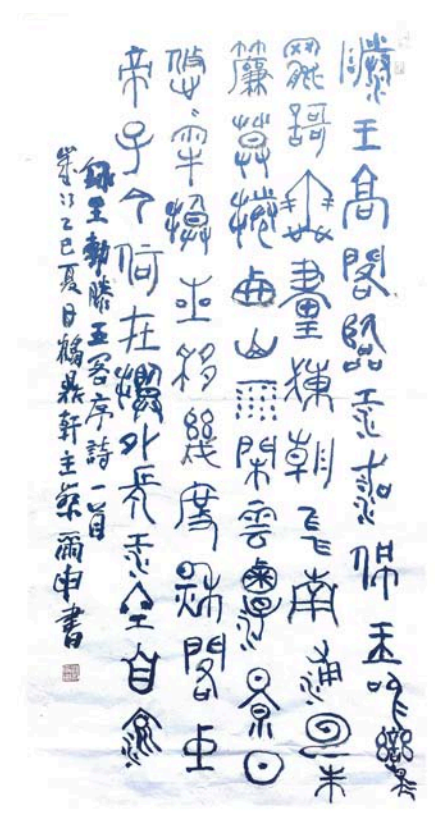 滕王高閣臨江渚佩玉鳴鸞
罷歌舞畫棟朝飛南浦雲珠
簾暮捲西山雨閒雲潭影日
悠〻物換星移幾度秋閣中
帝子今何在檻外長江空自流
錄王勃滕王閣序詩一首
歲次乙巳夏日鶴鼎軒主蔡爾申書